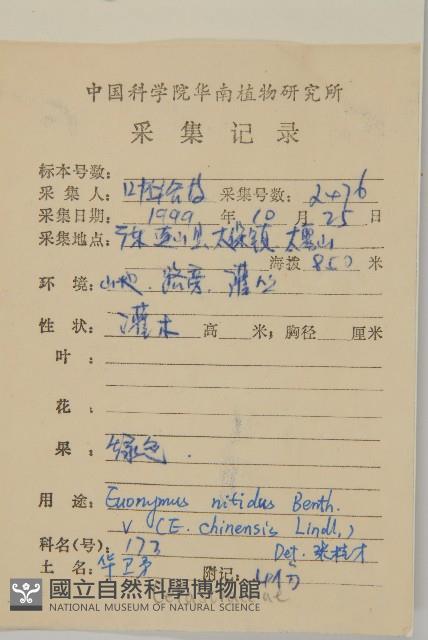 中国科学院华南植物研究所
采集记录
标本号数:
采集人: 叶华谷 采集号数: 2476
采集日期: 1999 年 10 月 25 日
采集地点: 广东 连山县 太保镇 大雾山
海拨 850 米
环境: 山地. 路旁. 灌丛
性状: 灌木 高 米; 胸径 厘米
叶:
花:
果: 绿色.
用途: Euonymus nitidus Benth.
(E. chinensis Lindl.)
科名(号): 173 Det. 张桂才
土名: 华卫矛 附记: 4份
國立自然科學博物館
NATIONAL MUSEUM OF NATURAL SCIENCE